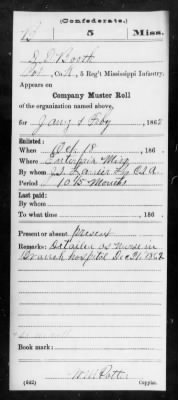 (Confederate.)
B 5 Miss.
Booth
Co. 5 Reg't Mississippi Infantry.
Appears on
Company Muster Roll
of the organization named above,
for Jany & Feby , 1862
Enlisted:
When Oct 18 , 186 .
Where Miss
By whom C.S.A.
Period Months
Last paid:
By whom
To what time , 186 .
Present or absent Present
Remarks: Detailed as nurse in
hospital Dec 31, 1862
Book mark:
(642) Copyist.